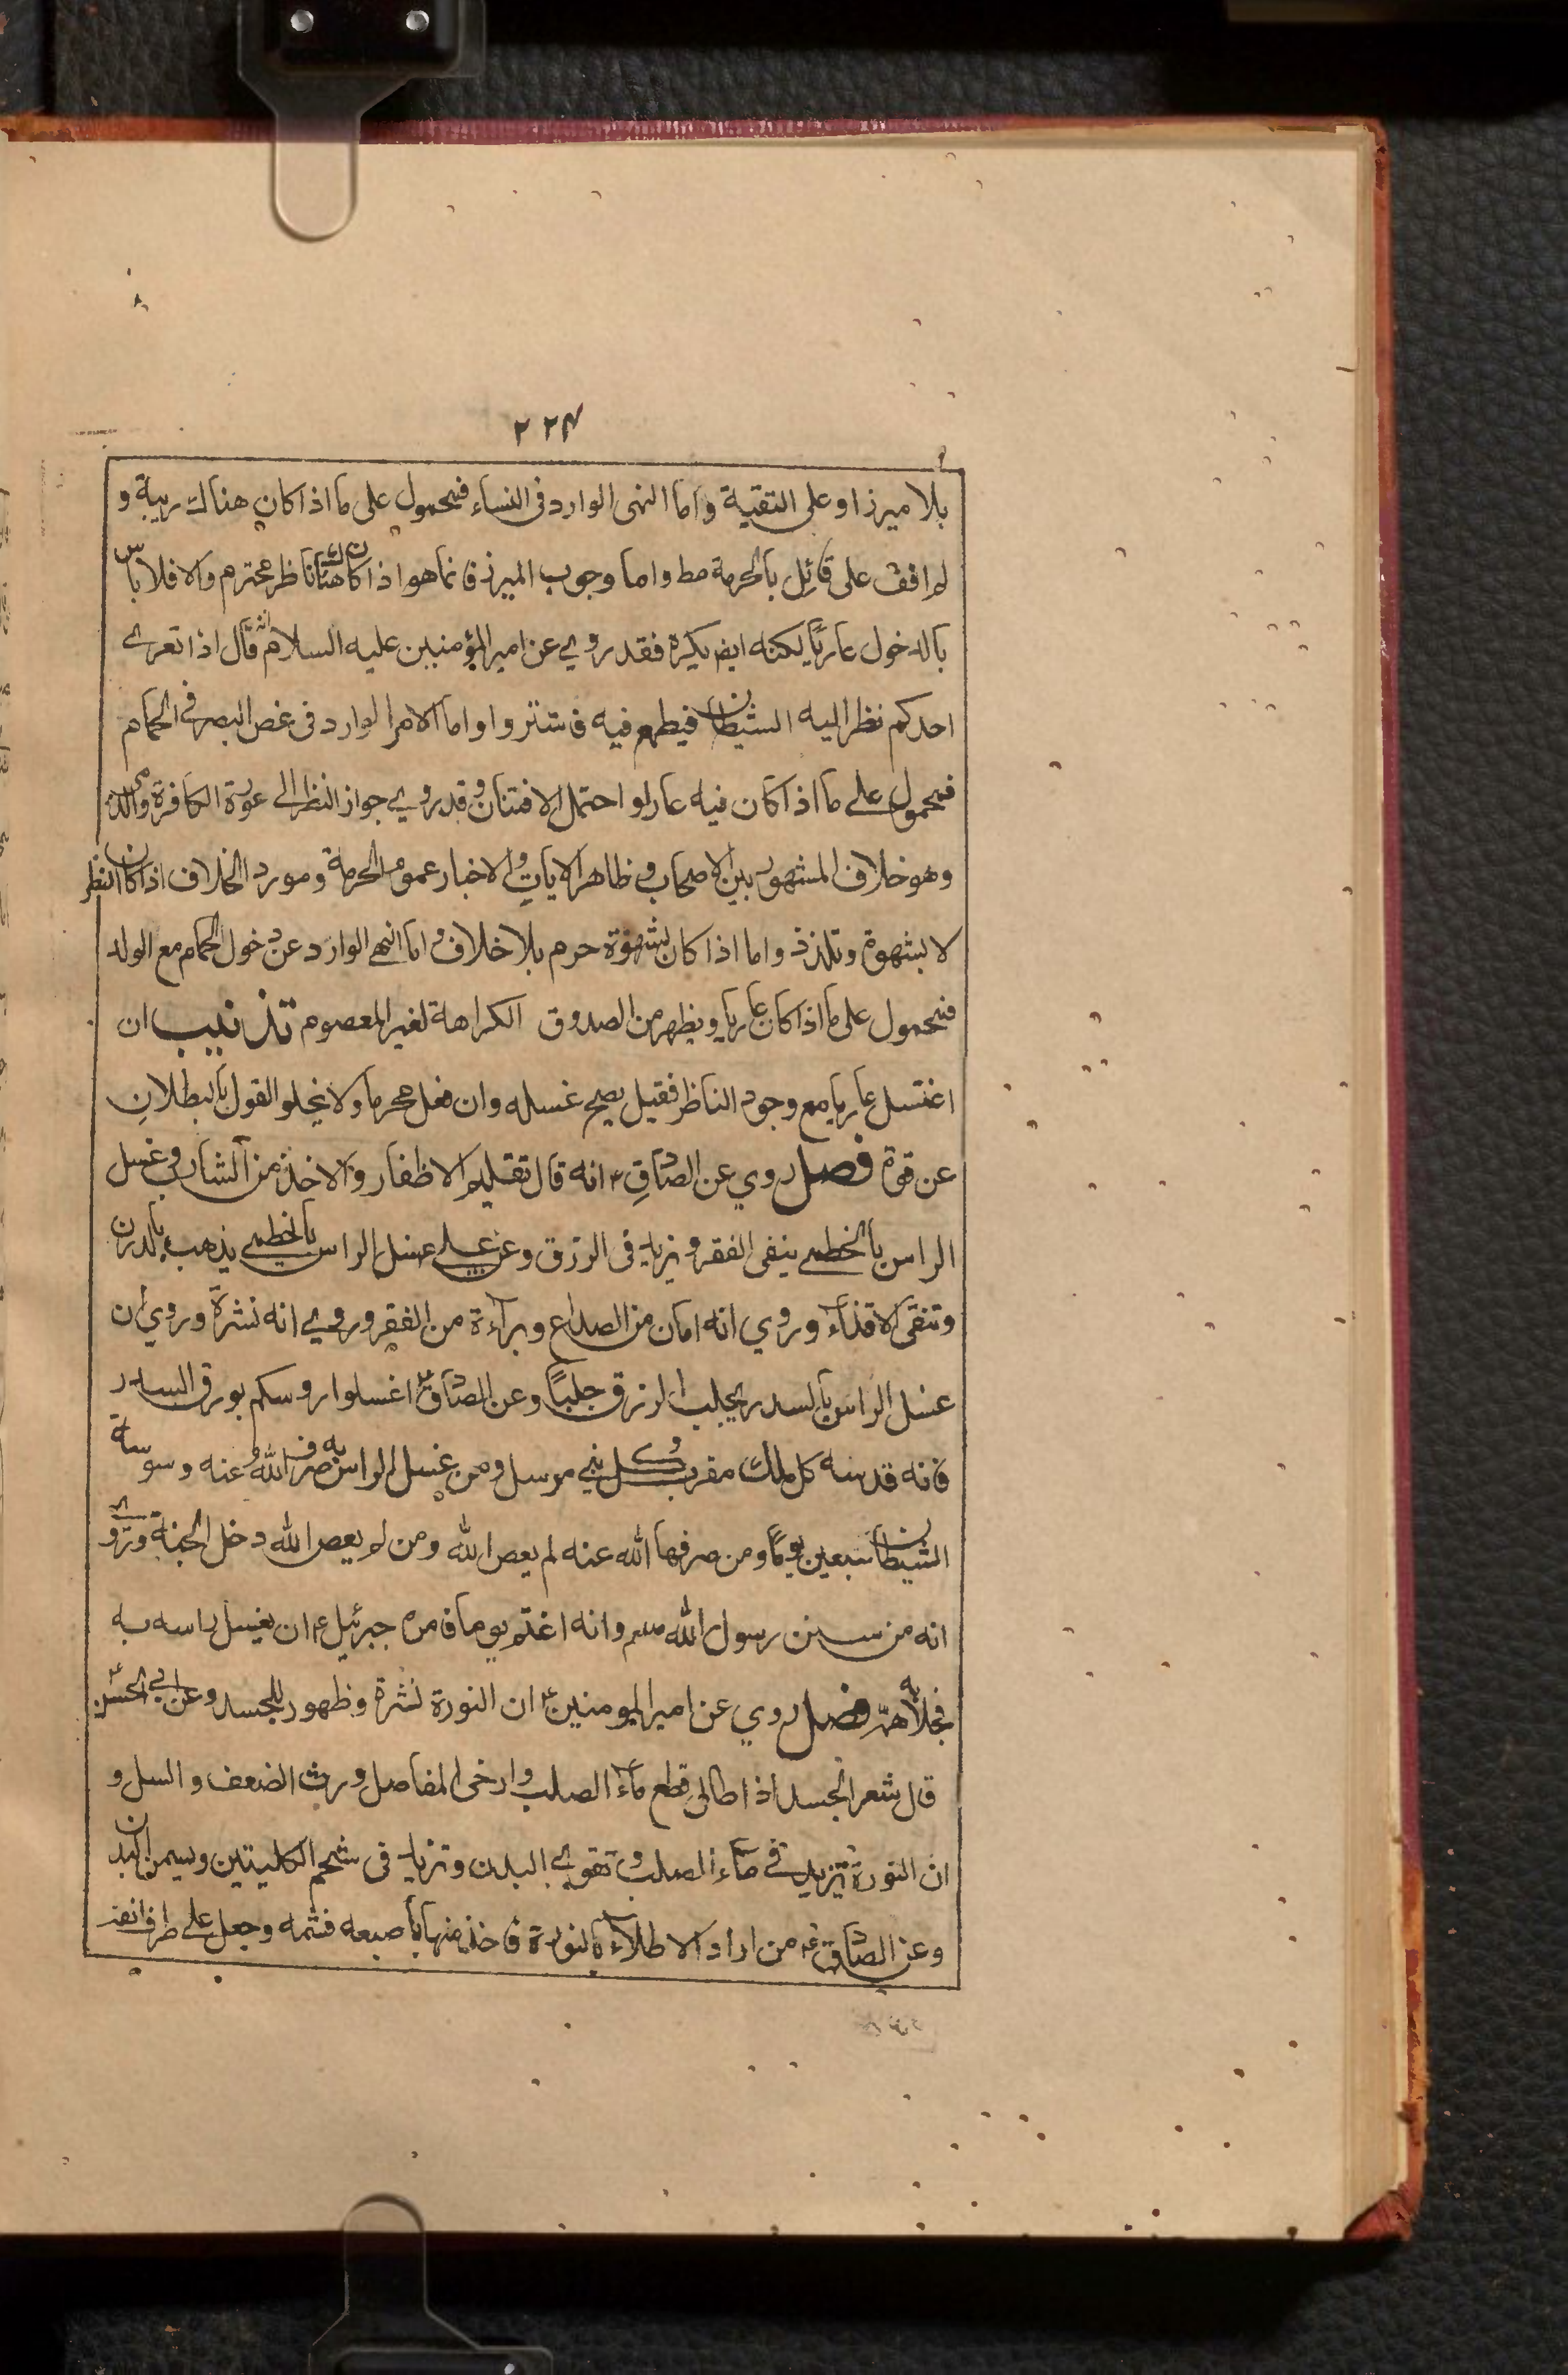 ٢٢٤
بلا ميزر او على التقية واما النهى الوارد فى النساء فمحمول على ما اذا كان هناك ريبة و
لم اقف على قائل بالحرمة مط واما وجوب الميزر فانما هو اذا كان هناك ناظر محترم والا فلا باس
بالدخول عاريا لكنه ايض يكره فقد روي عن امير المؤمنين عليه السلام انه قال اذا تعرى
احدكم نظر اليه الشيطان فيطمع فيه فاستتروا واما الامر الوارد فى غض البصر فى الحمام
فمحمول على ما اذا كان فيه عار او احتمل الافتنان وقد روي جواز النظر الى عورة الكافرة والذمى
وهو خلاف المشهور بين الاصحاب وظاهر الايات والاخبار عموم الحرمة ومورد الخلاف اذا كان النظر
لا بشهوة وتلذذ واما اذا كان بشهوة حرم بلا خلاف واما النهى الوارد عن دخول الحمام مع الولد
فمحمول على ما اذا كان عاريا ويظهر من الصدوق الكراهة لغير المعصوم تذنيب ان
اغتسل عاريا مع وجود الناظر فقيل يصح غسله وان فعل محرما ولا يخلو القول بالبطلان
عن قوة فصل روي عن الصادق ع انه قال تقليم الاظفار والاخذ من الشارب وغسل
الراس بالخطمى ينفى الفقر ويزيد فى الرزق وعن على غسل الراس بالخطمى يذهب بالدرن
وتنقى الاقذاء وروي انه امان من الصداع وبراءة من الفقر وروي انه نشرة وروي ان
غسل الراس بالسدر يجلب الرزق جلبًا وعن الصادق ع اغسلوا روسكم بورق السدر
فانه قدسه كل ملك مقرب وكل نبي مرسل ومن غسل الراس به صرف الله عنه وسوسة
الشيطان سبعين يومًا ومن صرفها الله عنه لم يعص الله ومن لم يعص الله دخل الجنة وروى
انه من سنن رسول الله صلعم وانه اغتم يوما فامره جبرئيل ع ان يغسل راسه به
فجلا به همه فصل روي عن امير المومنين ع ان النورة نشرة وطهور للجسد وعن ابي الحسن ع
قال شعر الجسد اذا طال قطع ماء الصلب وارخى المفاصل ورث الضعف والسل و
ان النورة تزيد فى ماء الصلب وتقوي البدن وتزيد فى شحم الكليتين وسمن البدن
وعن الصادق ع من اراد الاطلاء بالنورة فاخذ منها باصبعه فشمه وجعل على طرف انفه